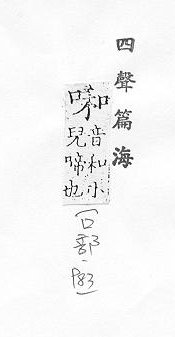 四聲篇海
啝
音和小
兒啼也
(口部-P83)